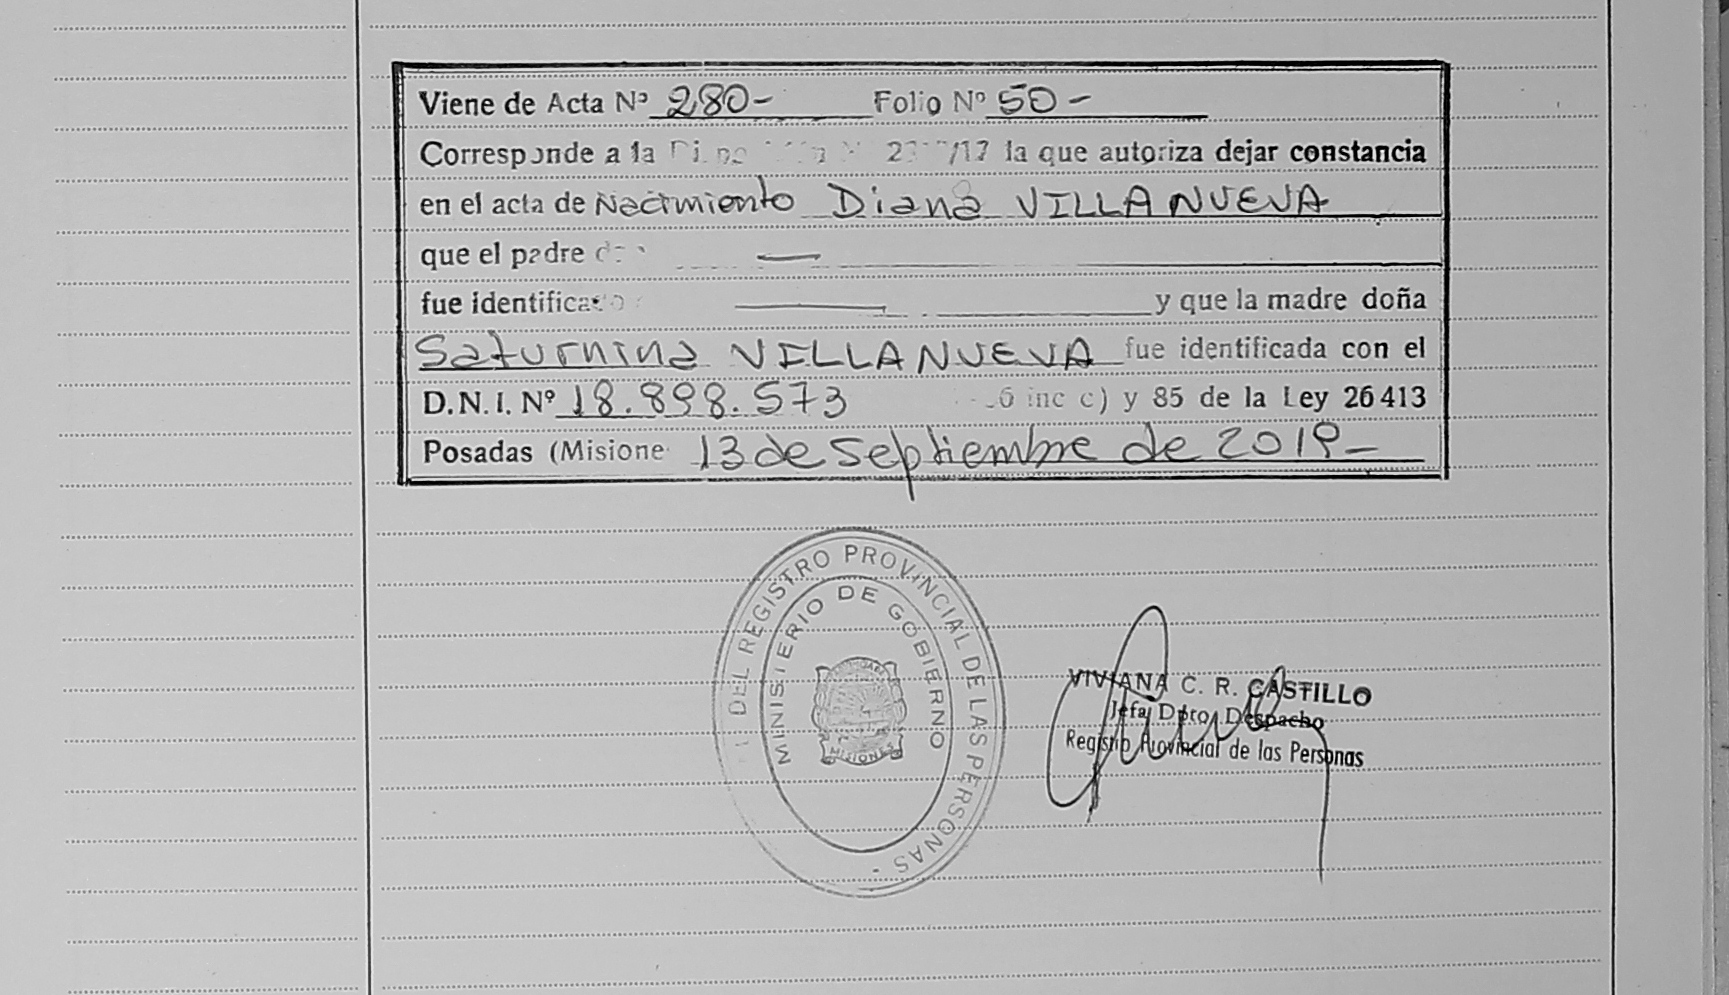 Viene de Acta Nº 280- Folio Nº 50-
Corresponde a la /17 la que autoriza dejar constancia
en el acta de Nacimiento Diana VILLANUEVA
que el padre
fue identificado y que la madre doña
Saturnina VILLANUEVA fue identificada con el
D.N.I. Nº 18.898.573 6 inc c) y 85 de la Ley 26413
Posadas (Misione 13 de septiembre de 2019-
DEL REGISTRO PROVINCIAL DE LAS PERSONAS
MINISTERIO DE GOBIERNO
MISIONES
VIVIANA C. R. CASTILLO
Jefa Dpto. Despacho
Registro Provincial de las Personas